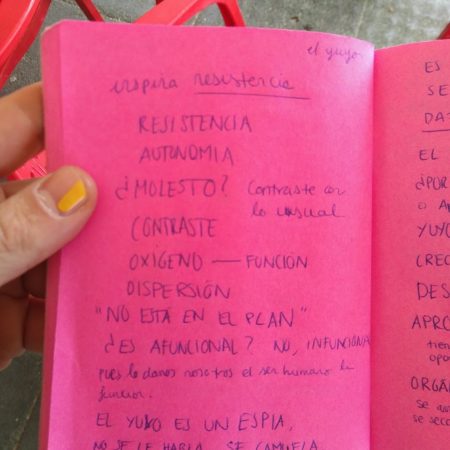 el yuyo
inspira resistencia
RESISTENCIA
AUTONOMIA
¿MOLESTO? Contraste con
lo usual
CONTRASTE
OXÍGENO — FUNCIÓN
DISPERSIÓN
"NO ESTÁ EN EL PLAN"
¿ES AFUNCIONAL? NO, INFUNCIONA
pues le damos nosotros el ser humano la
función.
EL YUYO ES UN ESPIA,
NO SE LE HABLA, SE CAMUFLA
ES
SE
EL
¿POR
YUYO
CREC
DES
APRO
tien
opo
ORGÁ